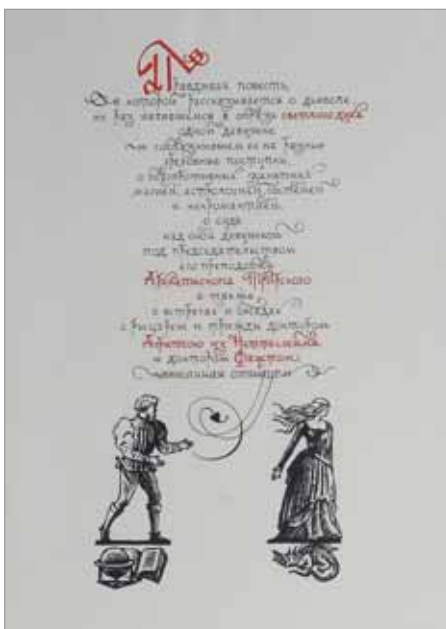 Правдивая повесть,
в которой рассказывается о дьяволе
не раз являвшемся в образе светлого духа
одной девушке
и соблазнявшем ее на разные
греховные поступки,
о богопротивных занятиях
магией, астрологией, гоетейей
и некромантией,
о суде
над оной девушкой
под председательством
его преподобия
Архиепископа Трирского
а также
о встречах и беседах
с рыцарем и трижды доктором
Агриппою из Неттесгейма
и доктором Фаустом,
написанная очевидцем